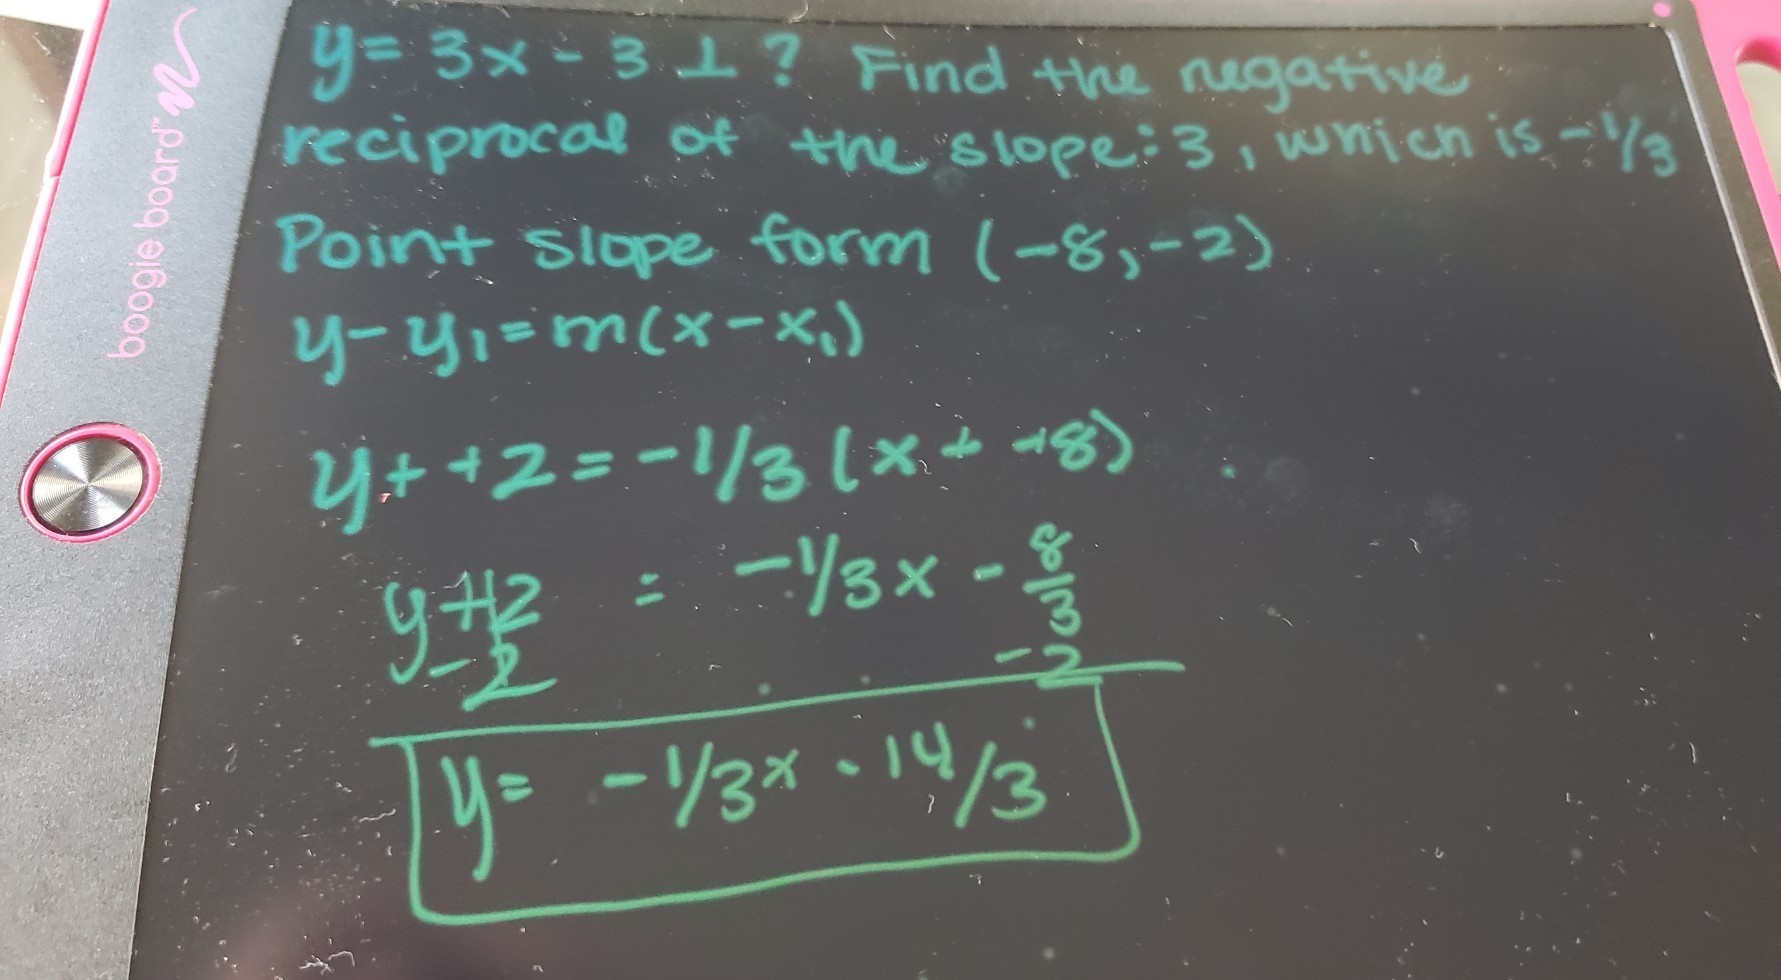 boogie board™
y = 3x - 3 ⊥ ? Find the negative
reciprocal of the slope: 3, which is -1/3
Point slope form (-8, -2)
y - y₁ = m(x - x₁)
y + +2 = -1/3 (x + +8)
y + 2 = -1/3 x - 8/3
-2 -2
y = -1/3 x - 14/3